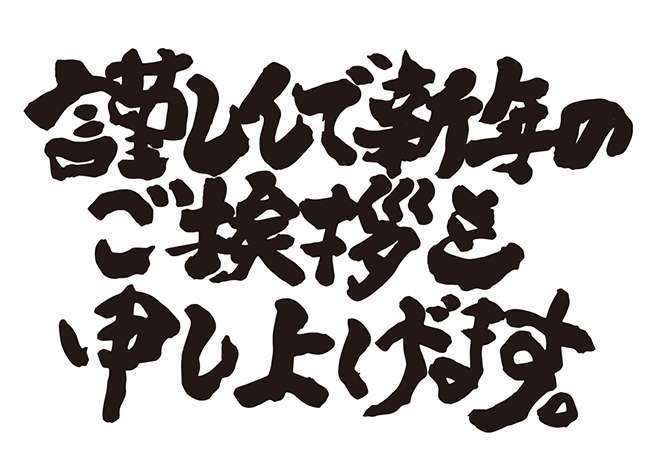 謹しんで新年の
ご挨拶を
申し上げます。